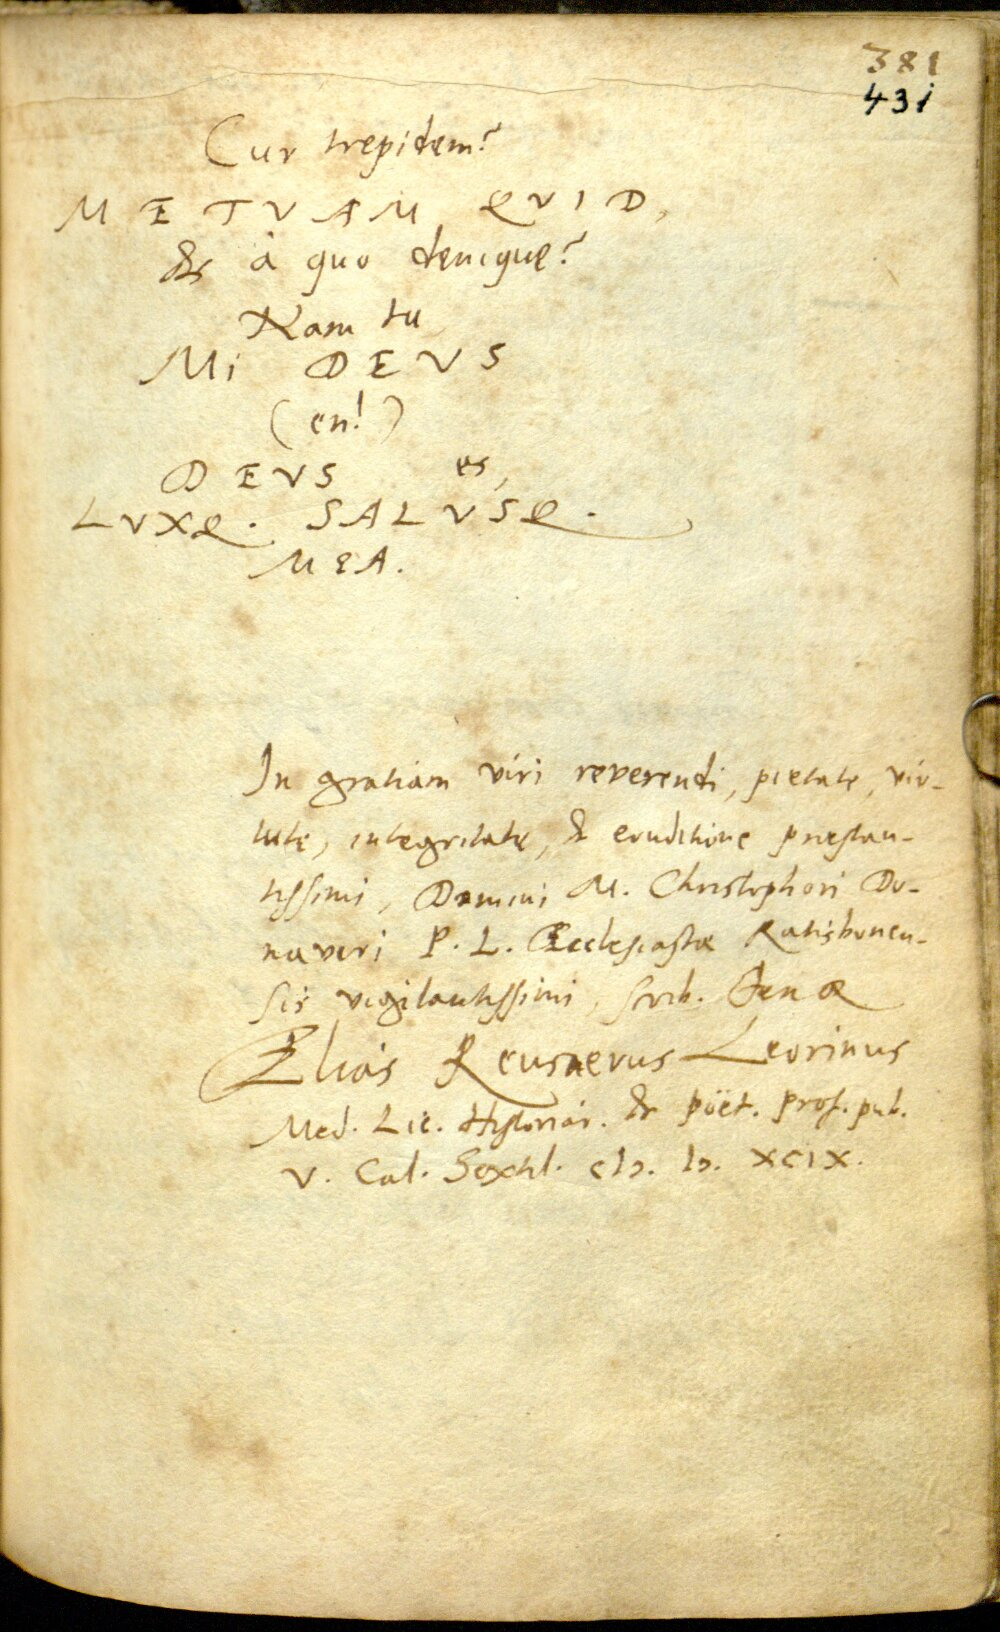 381
431
Cur trepidem?
METVAM QVID,
& à quo denique?
Nam tu
Mi DEVS
(en!)
DEVS es,
LVXQ. SALVSQ.
MEA.
In gratiam viri reverendi, pietate, vir-
tute, integritate, & eruditione præstan-
tissimi, Domini M. Christophori Do-
naveri P. L. Ecclesiastæ Ratisbonen-
sis vigilantissimi, scrib. Jenæ
Elias Reusnerus Leorinus
Med. Lic. Historiar. & poët. prof. pub.
V. Cal. Sextil. cIɔ. Iɔ. XCIX.